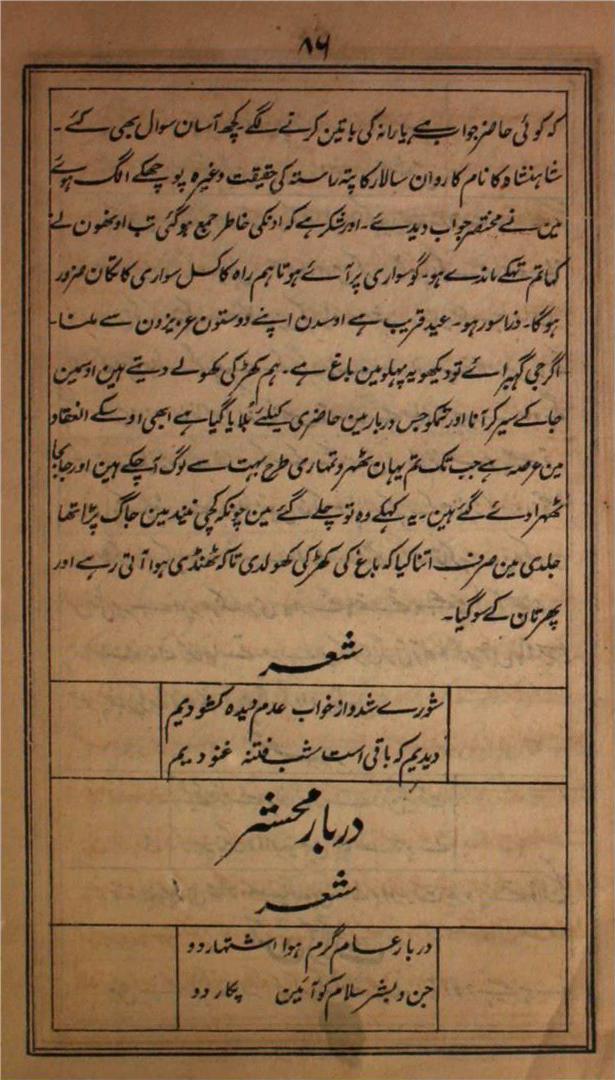 ۸۶
کہ کوئی حاضر جواب ہے یارانہ کی باتین کرنے لگے کچھ آسان سوال بھی کئے ۔
شاہنشاہ کا نام کاروان سالار کا پتہ راستہ کی حقیقت وغیرہ پوچھکے الگ ہوئے
مین نے مختصر جواب دیدئے ۔ اور شکر ہے کہ اونکی خاطر جمع ہو گئی تب اونھون نے
کہا تم تھکے ماندے ہو ۔ گو سواری پر آئے ہو تا ہم راہ کا کسل سواری کا تکان ضرور
ہوگا ۔ ذرا سو رہو ۔ عید قریب ہے اوسدن اپنے دوستون عزیزون سے ملنا ۔
اگر جی گھبرائے تو دیکھو یہ پہلو مین باغ ہے ۔ ہم کھڑکی کھولے دیتے ہین اوسمین
جا کے سیر کر آنا اور تمکو جس دربار مین حاضری کیلئے بلایا گیا ہے ابھی اوسکے انعقاد
مین عرصہ ہے جب تک تم یہان ٹھہرو تمہاری طرح بہت سے لوگ آ چکے ہین اور جابجا
ٹھہرا دئے گئے ہین ۔ یہ کہکے وہ تو چلے گئے مین چونکہ کچی نیند مین جاگ پڑا تھا
جلدی مین صرف اتنا کیا کہ باغ کی کھڑکی کھولدی تاکہ ٹھنڈی ہوا آتی رہے اور
پھر تان کے سو گیا ۔
شعر
شورے شد و از خواب عدم دیدہ کشودیم
دیدیم کہ باقی است شب فتنہ غنودیم
دربار محشر
شعر
دربار عام گرم ہوا اشتہار دو
جن و بشر سلام کو آئین پکار دو